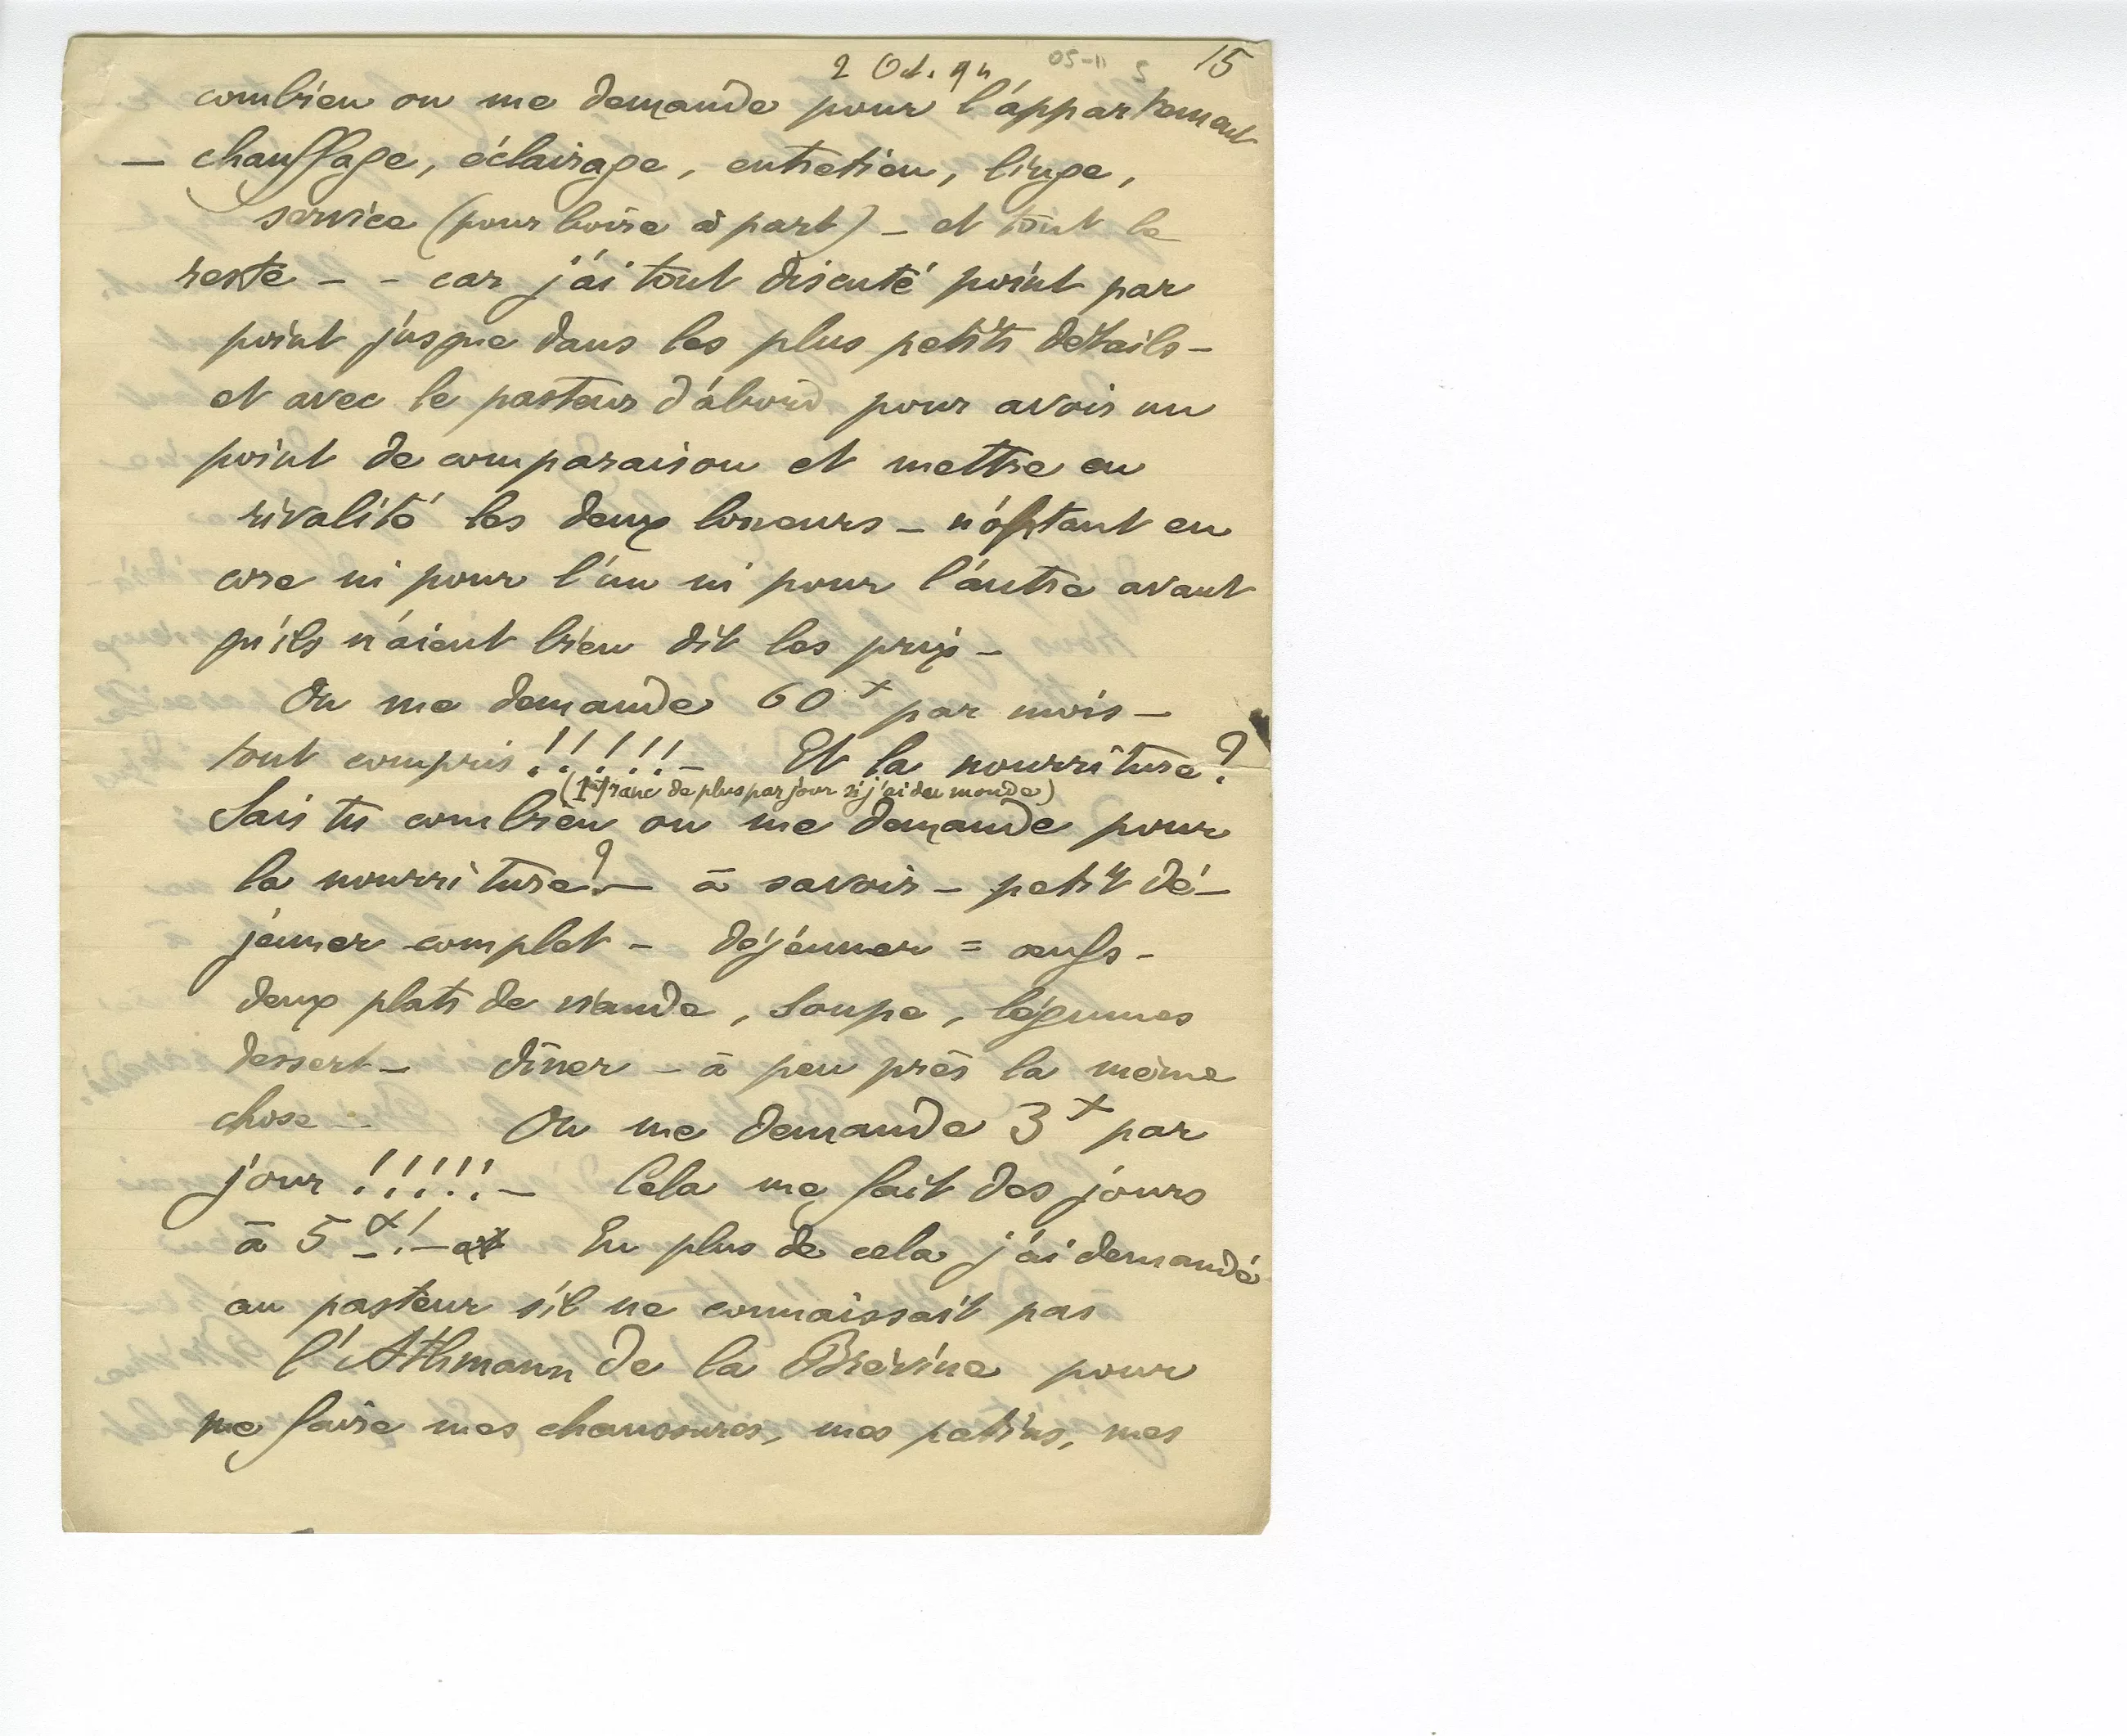 2 Oct. 94 05-11 5 15
combien on me demande pour l'appartement
— chauffage, éclairage, entretien, linge,
service (pourboire à part) — et tout le
reste — — car j'ai tout discuté point par
point jusque dans les plus petits détails —
et avec le pasteur d'abord pour avoir un
point de comparaison et mettre en
rivalité les deux loueurs — n'optant en
core ni pour l'un ni pour l'autre avant
qu'ils n'aient bien dit les prix —
On me demande 60 x par mois —
tout compris !!!!!! — Et la nourriture?
(1 franc de plus par jour si j'ai du monde)
Sais tu combien on me demande pour
la nourriture? — à savoir — petit dé—
jeuner complet — déjeuner = œufs —
deux plats de viande, soupe, légumes
dessert — dîner — à peu près la même
chose — On me demande 3 x par
jour !!!!!! — Cela me fait des jours
à 5 x! — En plus de cela j'ai demandé
au pasteur s'il ne connaissait pas
l'Athmann de la Brévine pour
me faire mes chaussures, mes patins, mes